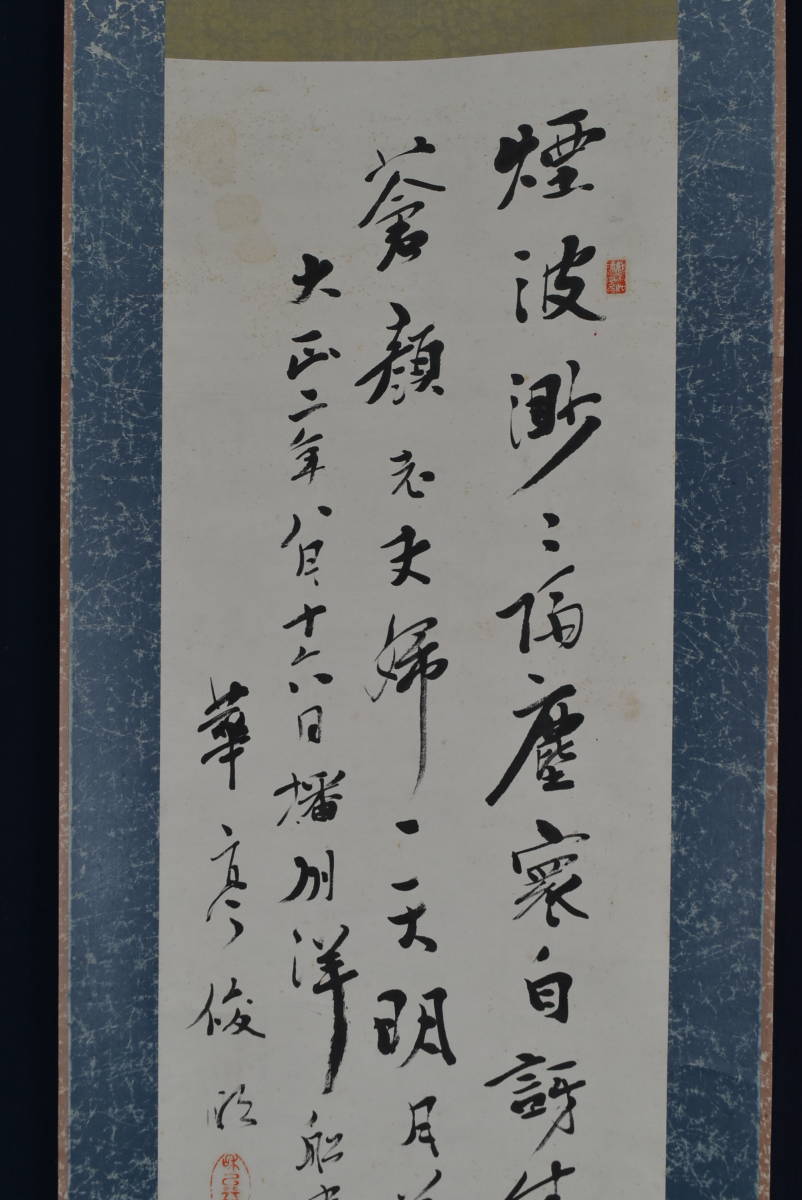 煙波渺〻隔塵寰自訝
蒼顔老夫婦一天明月
大正二年八月十六日播州洋船
華亭俊